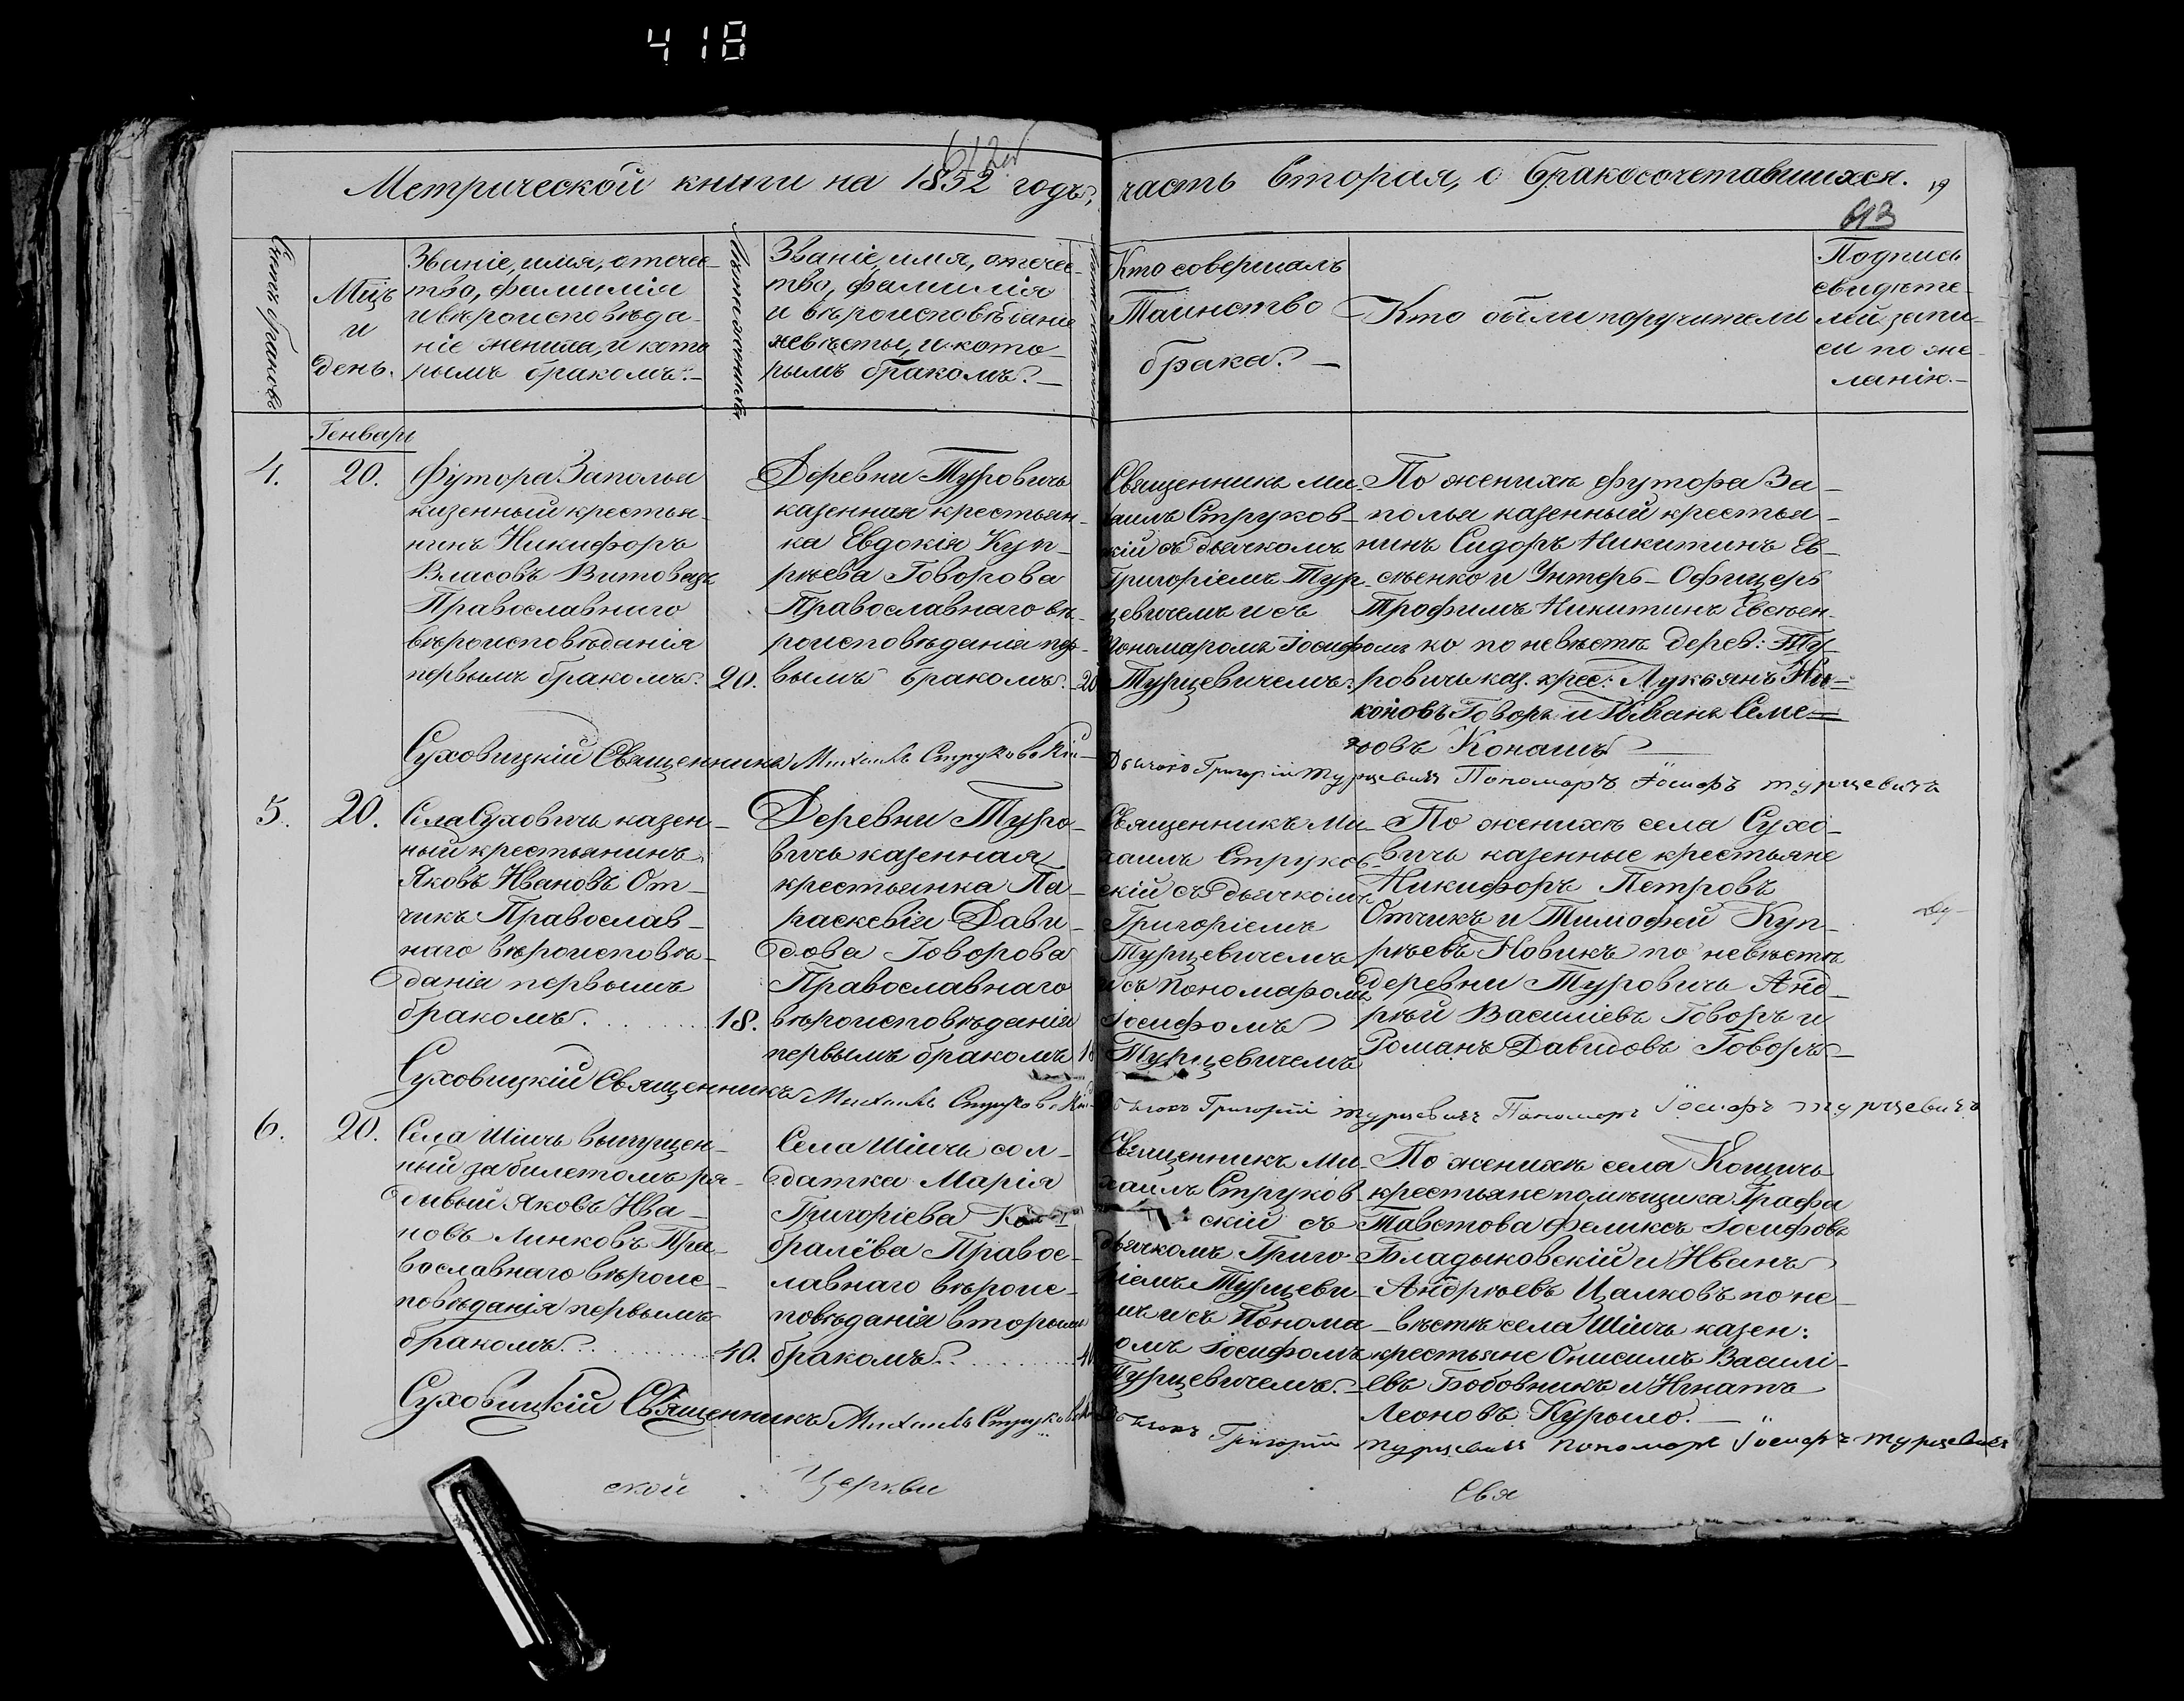 418
612об
Метрической книги на 1852 годъ,
часть вторая, о бракосочетавшихся.
19
613
Счетъ браковъ
Мцъ
и
день.
Званіе, имя, отчес-
тво, фамилія
и вѣроисповѣда-
ніе жениха, и кото
рымъ бракомъ.
Лѣта жениха
Званіе, имя, отчес-
тво, фамилія
и вѣроисповѣданіе
невѣсты, и кото-
рымъ бракомъ.
Лѣта невѣсты
Кто совершалъ
Таинство
брака.
Кто были поручители
Подпись
свидѣте-
лей запи-
си по же-
ланію.
Генваря
4.
20.
Футора Заполья
казенный крестья-
нинъ Никифоръ
Власовъ Витовецъ
Православнаго
вѣроисповѣданія
первымъ бракомъ.
20.
Деревни Туровичъ
казенная крестьян-
ка Евдокія Куп-
рѣева Говорова
Православнаго вѣ-
роисповѣданія пер-
вымъ бракомъ.
20
Священникъ Ми-
хаилъ Струков-
скій съ дьячкомъ
Григоріемъ Тур-
цевичемъ и съ
Пономаромъ Іосифомъ
Турцевичемъ.
По женихѣ футора За-
полья казенный крестья-
нинъ Сидоръ Никитинъ Ев-
сѣенко и Унтеръ-Офицеръ
Трофимъ Никитинъ Евсѣен-
ко по невѣстѣ дерев: Ту-
ровичъ каз. крес: Лукьянъ Ни-
коновъ Говоръ и Иванъ Семе-
новъ Конашъ
Суховицкій Священникъ Михаилъ Струковскій
Дьячокъ Григорій Турцевичъ Пономарь Іосифъ Турцевичъ
5.
20.
Села Суховичъ казен-
ный крестьянинъ
Яковъ Ивановъ От-
чикъ Православ-
наго вѣроисповѣ-
данія первымъ
бракомъ.
18.
Деревни Туро-
вичъ казенная
крестьянка Па-
раскевія Дави-
дова Говорова
Православнаго
вѣроисповѣданія
первымъ бракомъ
Священникъ Ми-
хаилъ Струков-
скій съ дьячкомъ
Григоріемъ
Турцевичемъ
и съ Пономаромъ
Іосифомъ
Турцевичемъ
По женихѣ села Сухо-
вичъ казенные крестьяне
Никифоръ Петровъ
Отчикъ и Тимофей Куп-
рѣевъ Новикъ по невѣстѣ
деревни Туровичъ Анд-
рѣй Василіевъ Говоръ и
Романъ Давидовъ Говоръ
Суховицкій Священникъ Михаилъ Струковскій
Дьячокъ Григорій Турцевичъ Пономарь Іосифъ Турцевичъ
6.
20.
Села Шіичъ выпущен-
ный за билетомъ ря-
довый Яковъ Ива-
новъ Линковъ Пра-
вославнаго вѣроис-
повѣданія первымъ
бракомъ.
40.
Села Шіичъ сол-
датка Марія
Григоріева
Правос-
лавнаго вѣроис-
повѣданія вторымъ
бракомъ.
40
Священникъ Ми-
хаилъ Струков-
скій съ
дьячкомъ Григо-
ріемъ Турцеви-
чемъ и съ Понома-
ромъ Іосифомъ
Турцевичемъ.
По женихѣ села Кощичъ
крестьяне помѣщика Графа
Феликсъ Іосифовъ
Бладыковскій и Иванъ
Андрѣевъ Цалковъ по не-
вѣстѣ села Шіичъ казен:
крестьяне Онисимъ Василі-
евъ Бобовникъ и Игнатъ
Леоновъ Курыло.
Суховицкій Священникъ Михаилъ Струковскій
Дьячокъ Григорій Турцевичъ Пономарь Іосифъ Турцевичъ
ской
Церкви
Свя